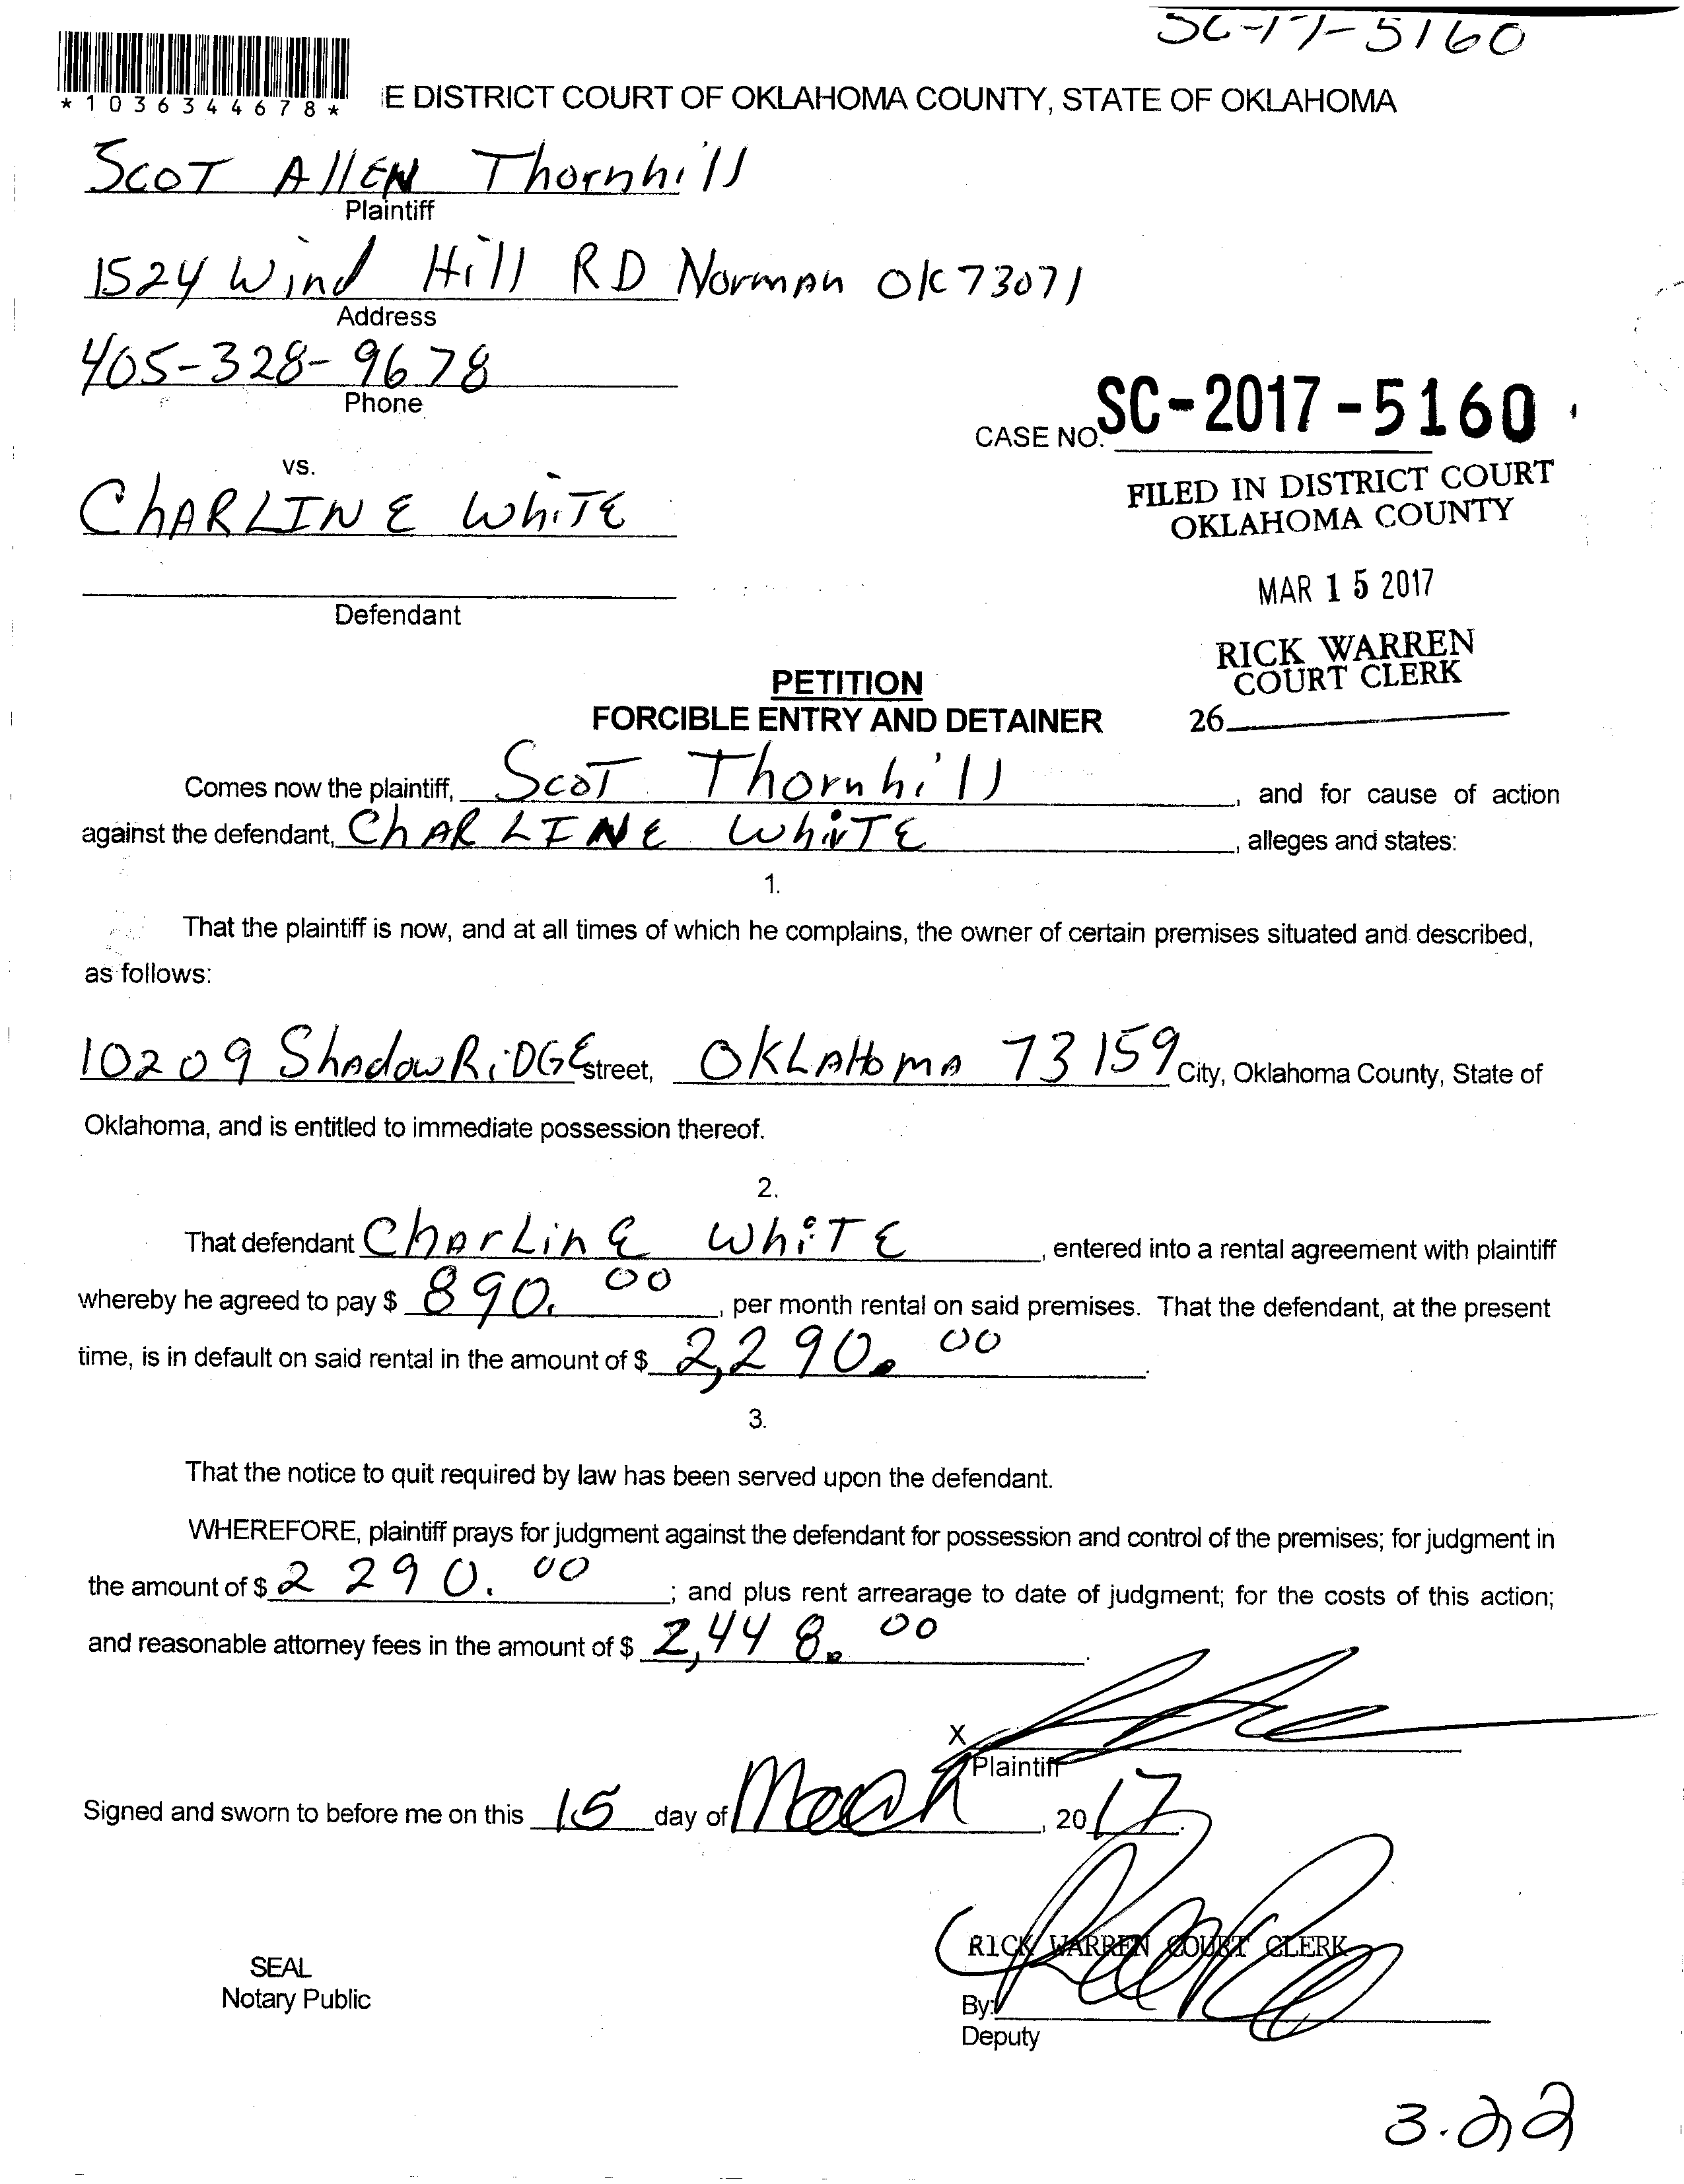 SC-17-5160
*1036344678*
E DISTRICT COURT OF OKLAHOMA COUNTY, STATE OF OKLAHOMA
SCOT AllEN Thornhill
Plaintiff
1524 Wind Hill RD Norman OK 73071
Address
405-328-9678
Phone
CASE NO. SC-2017-5160
vs.
ChARLINE WhiTE
FILED IN DISTRICT COURT
OKLAHOMA COUNTY
MAR 15 2017
Defendant
RICK WARREN
COURT CLERK
PETITION
FORCIBLE ENTRY AND DETAINER
26
Comes now the plaintiff, ScoT Thornhill, and for cause of action
against the defendant, ChARLINE WhiTE, alleges and states:
1.
That the plaintiff is now, and at all times of which he complains, the owner of certain premises situated and described,
as follows:
10209 ShadowRiDGE street, OKLAHomA 73159 City, Oklahoma County, State of
Oklahoma, and is entitled to immediate possession thereof.
2.
That defendant CharLinE WhiTE, entered into a rental agreement with plaintiff
whereby he agreed to pay $ 890.00, per month rental on said premises. That the defendant, at the present
time, is in default on said rental in the amount of $ 2,290.00.
3.
That the notice to quit required by law has been served upon the defendant.
WHEREFORE, plaintiff prays for judgment against the defendant for possession and control of the premises; for judgment in
the amount of $ 2290.00; and plus rent arrearage to date of judgment; for the costs of this action;
and reasonable attorney fees in the amount of $ 2,448.00.
X
Plaintiff
Signed and sworn to before me on this 15 day of March, 2017.
RICK WARREN COURT CLERK
SEAL
Notary Public
By:
Deputy
3.22